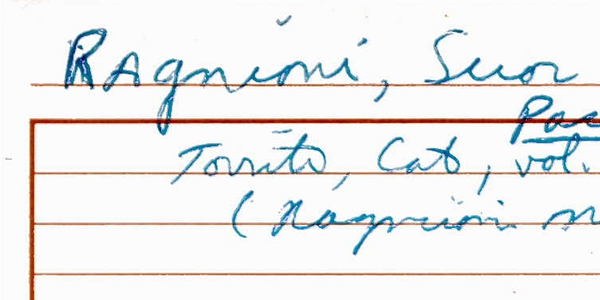 Ragnioni, Suor
Pac
Torrito, Cat, vol.
(Ragnioni m